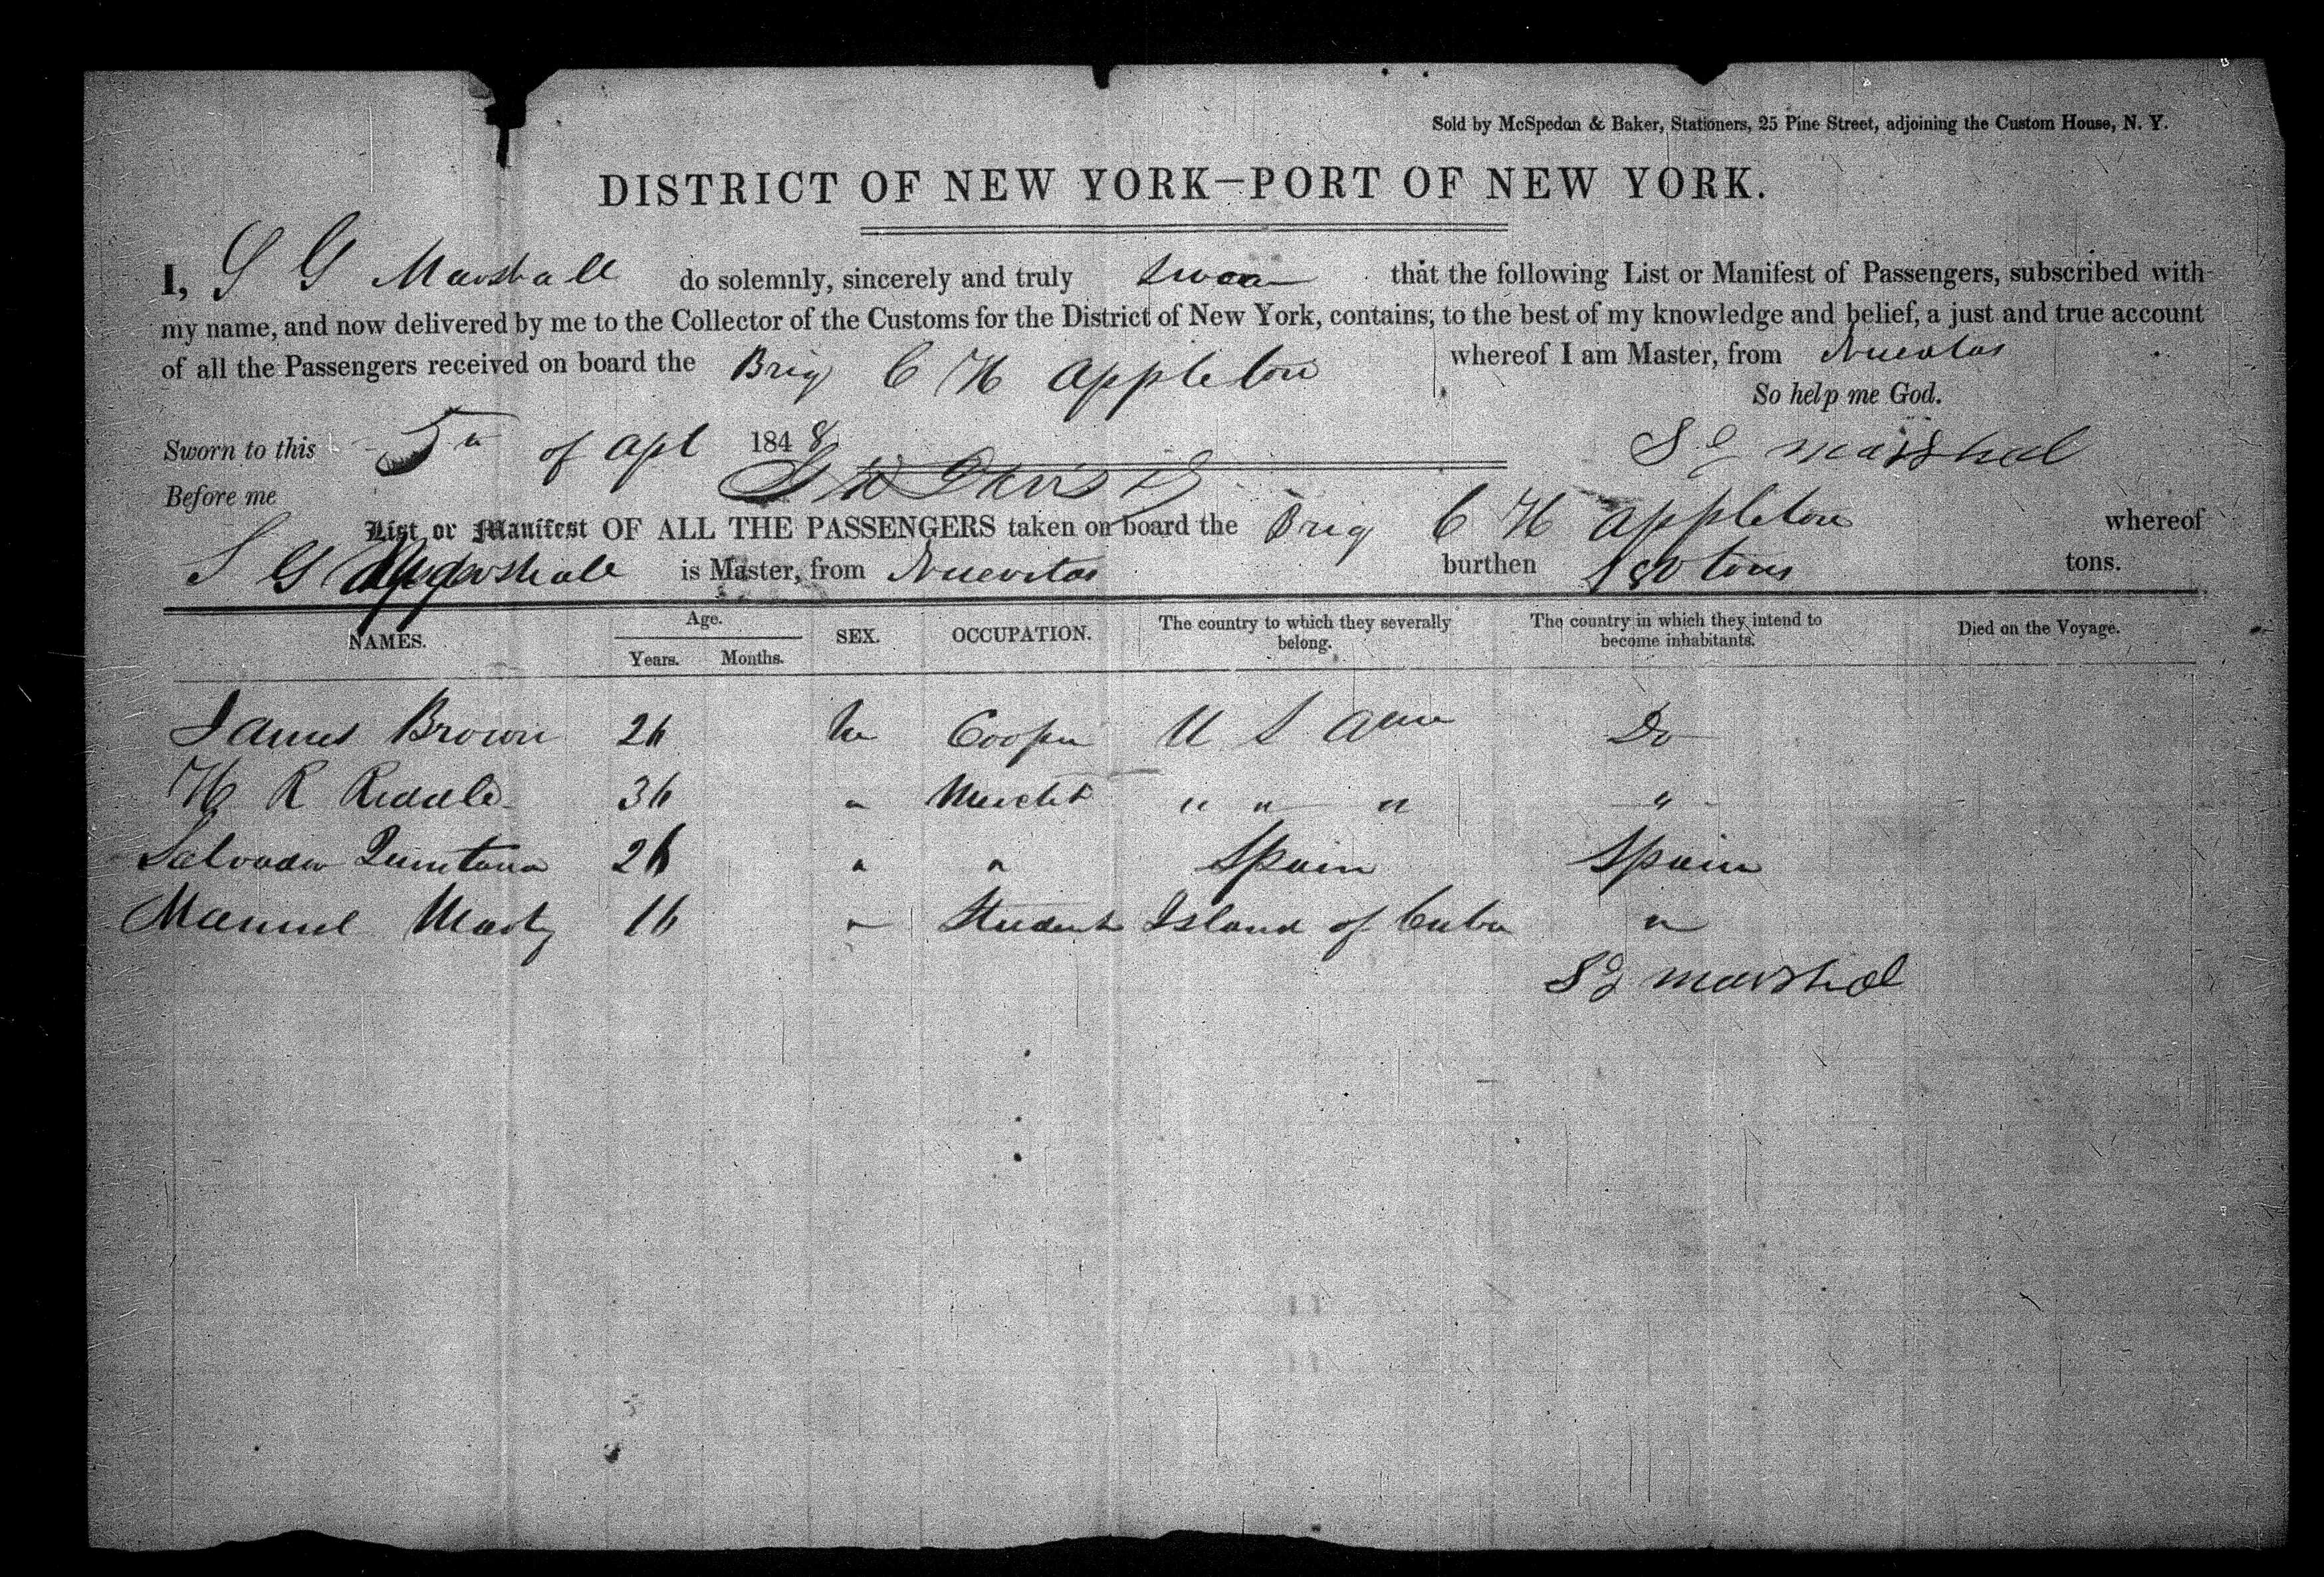 Sold by McSpedon & Baker, Stationers, 25 Pine Street, adjoining the Custom House, N. Y.
DISTRICT OF NEW YORK—PORT OF NEW YORK.
I, S G Marshall do solemnly, sincerely and truly swear that the following List or Manifest of Passengers, subscribed with
my name, and now delivered by me to the Collector of the Customs for the District of New York, contains, to the best of my knowledge and belief, a just and true account
of all the Passengers received on board the Brig C H Appleton whereof I am Master, from Nuevitas
So help me God.
Sworn to this 5th of Apl 1848 S G Marshal
Before me
List or Manifest OF ALL THE PASSENGERS taken on board the Brig C H Appleton whereof
S G Marshall is Master, from Nuevitas burthen tons tons.
NAMES. Age. Years. Months. SEX. OCCUPATION. The country to which they severally belong. The country in which they intend to become inhabitants. Died on the Voyage.
James Brown 26 M Cooper U S Ame Do
H R Riddle 36 " Mercht " " " "
Salvador Quintana 26 " " Spain Spain
Manuel Marty 16 " Student Island of Cuba "
S G Marshal